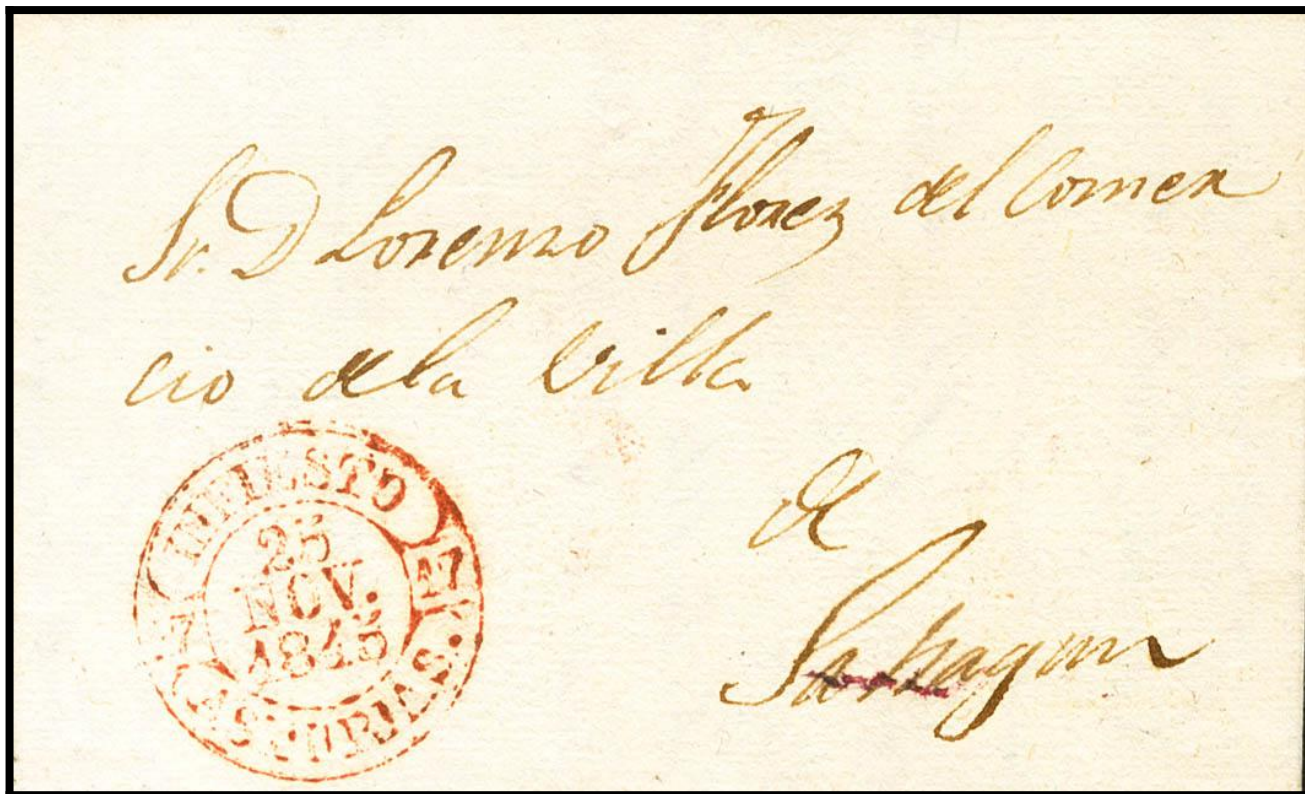 Sr. D Lorenzo Florez del Comer
cio dela Villa
de
Sahagun
INFIESTO
25
NOV.
1845
ASTURIAS.